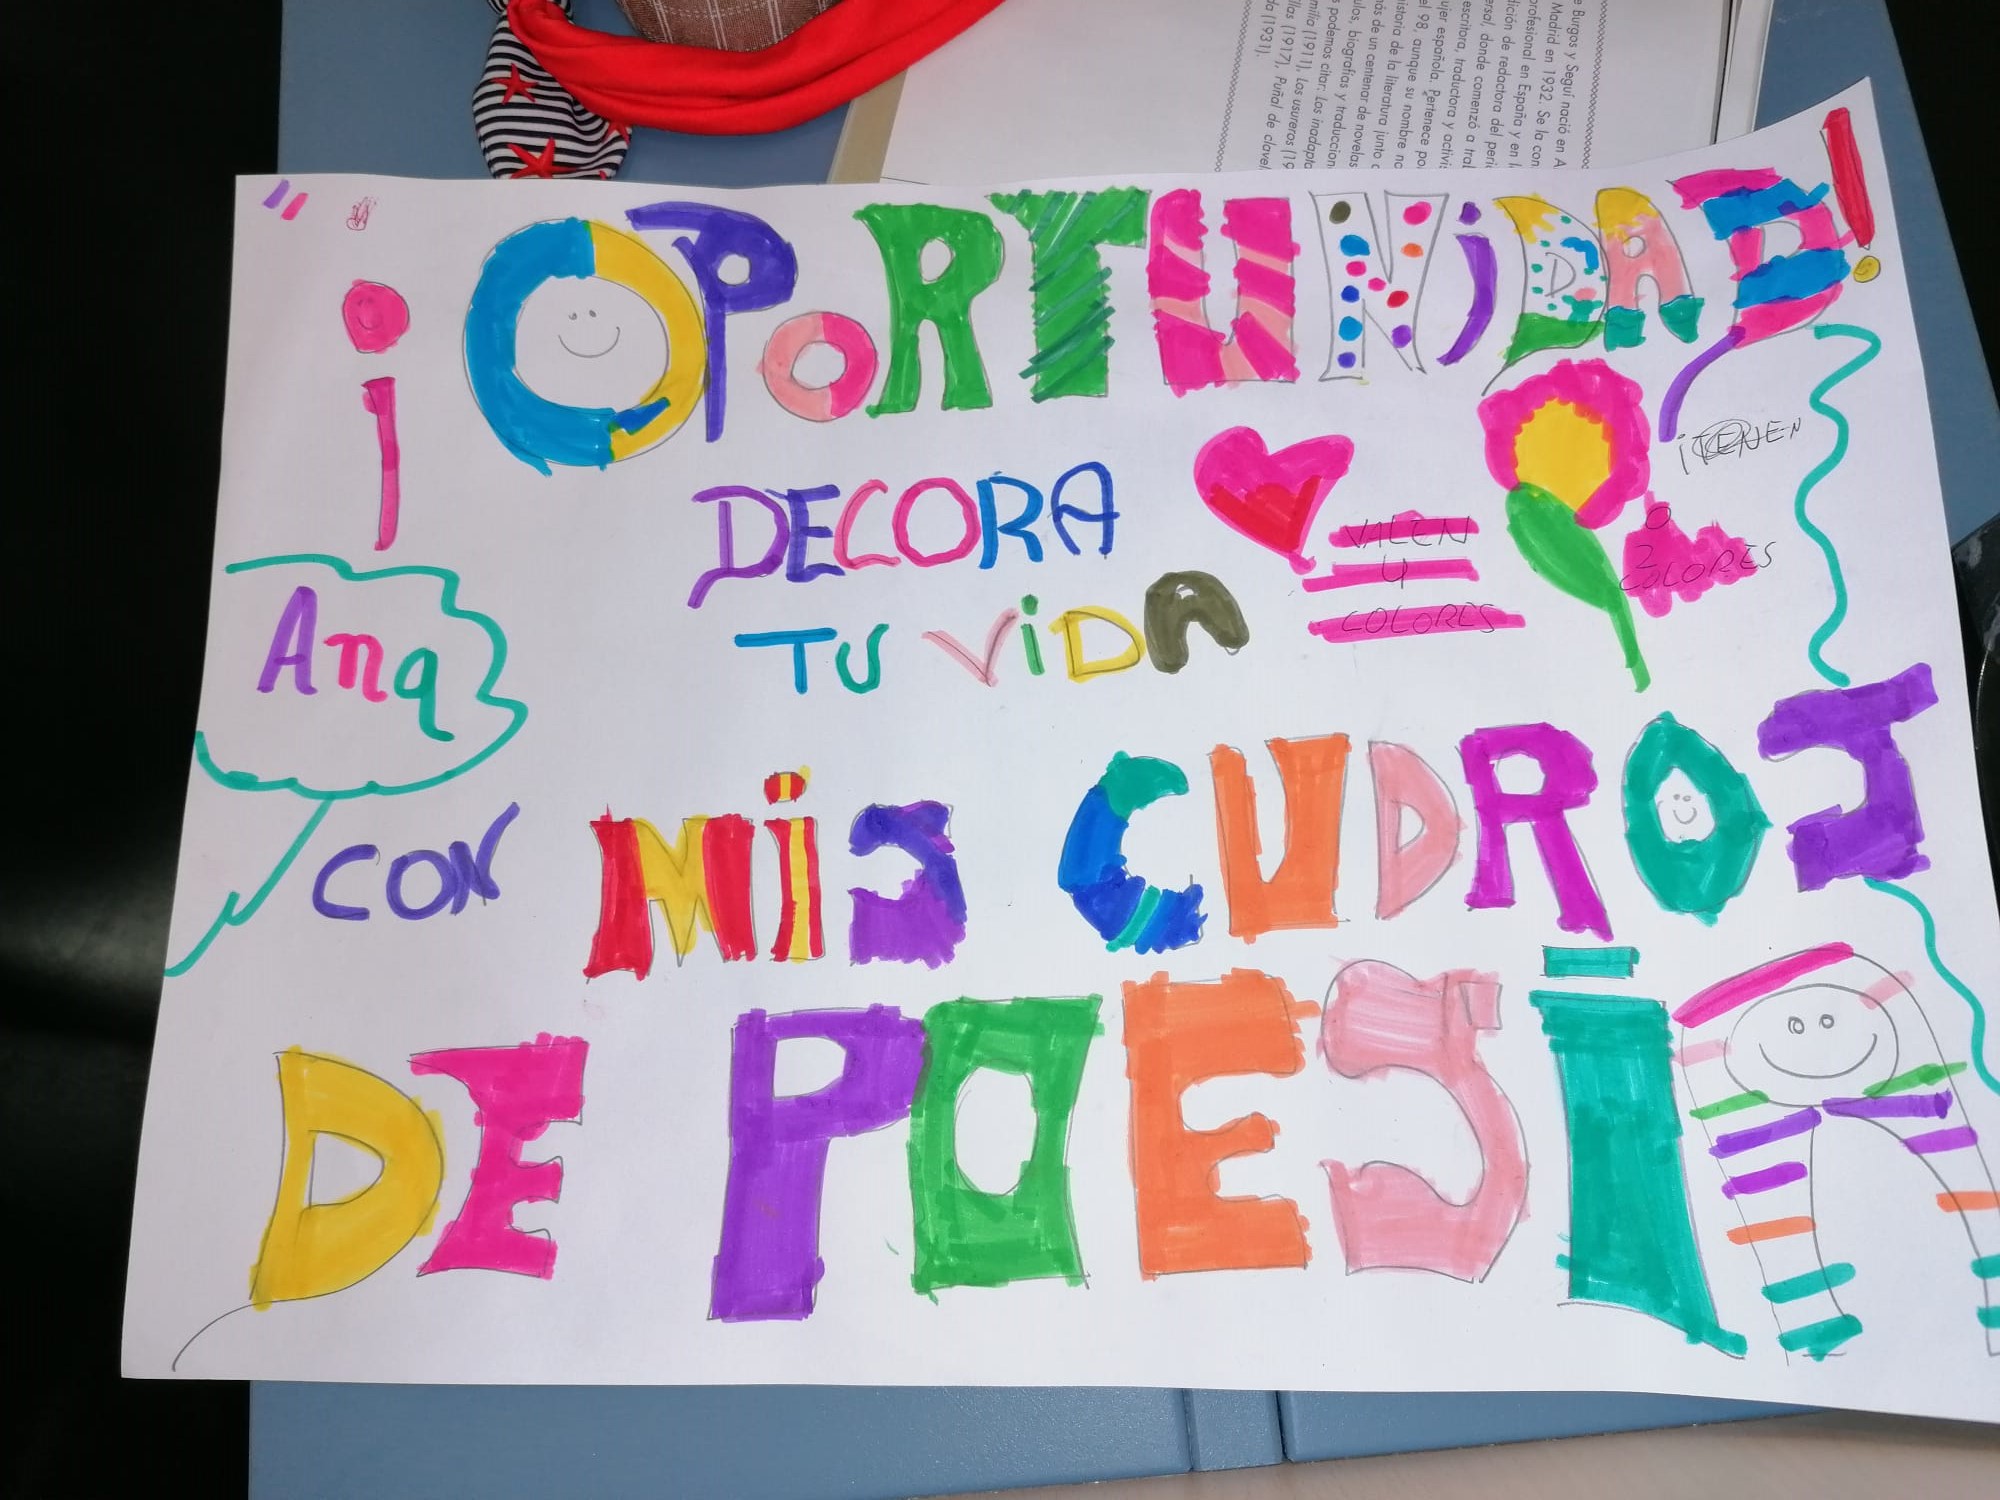 e Burgos y Seguí nació en A
Madrid en 1932. Se la con
profesional en España y en l
dición de redactora del peri
ersal, donde comenzó a tral
escritora, traductora y activi
ujer española. Pertenece po
el 98, aunque su nombre no
istoria de la literatura junto a
más de un centenar de novelas
ulos, biografías y traduccion
s podemos citar: Los inadapta
milia (1911), Los usureros (19
illas (1917), Puñal de clavel
da (1931).
¡OPORTUNiDAD!
DECORA
TU ViDA
VALEN
4
COLORES
¡TENEN
0
2
COLORES
Ana
CON MiS CUDROS
DE POESÍA